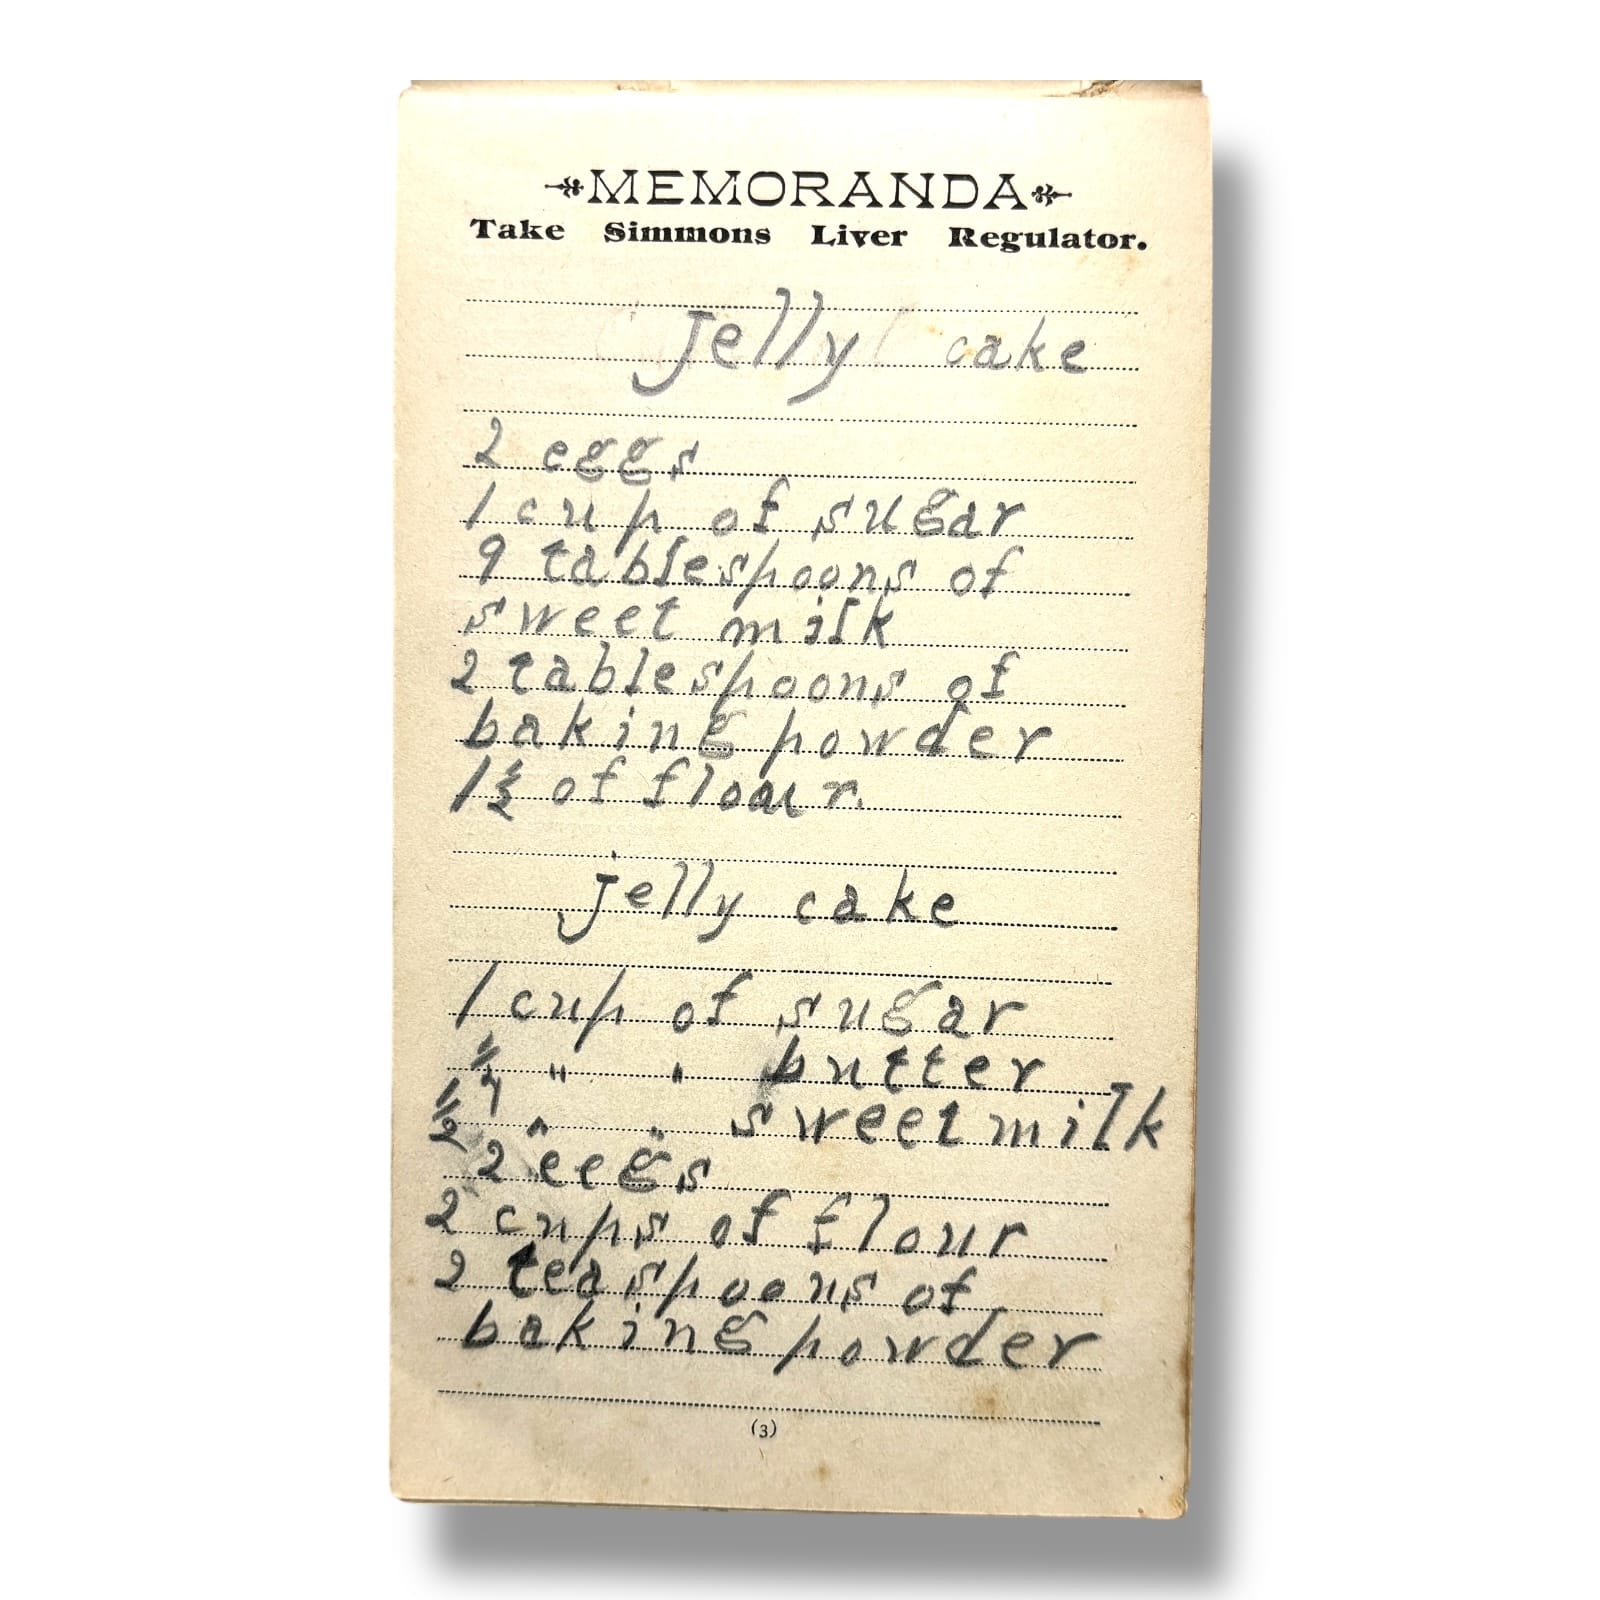 MEMORANDA
Take Simmons Liver Regulator.
Jelly cake
2 eggs
1 cup of sugar
9 tablespoons of
sweet milk
2 tablespoons of
baking powder
1 1/2 of flour.
jelly cake
1 cup of sugar
1/4 " " butter
1/2 " " sweet milk
2 eegs
2 cups of flour
2 teaspoons of
baking powder
(3)